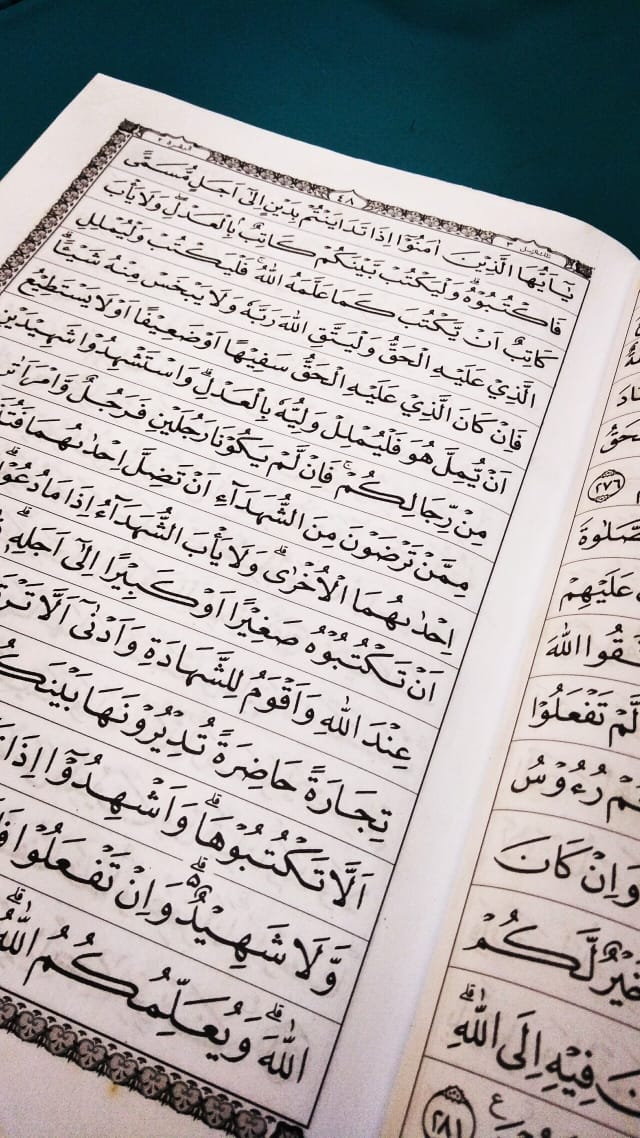 تلك الرسل ٣ ٤٨ البقرة ٢
يٰٓاَيُّهَا الَّذِيْنَ اٰمَنُوْٓا اِذَا تَدَايَنْتُمْ بِدَيْنٍ اِلٰٓى اَجَلٍ مُّسَمًّى
فَاكْتُبُوْهُۗ وَلْيَكْتُبْ بَّيْنَكُمْ كَاتِبٌۢ بِالْعَدْلِۖ وَلَا يَأْبَ
كَاتِبٌ اَنْ يَّكْتُبَ كَمَا عَلَّمَهُ اللّٰهُ ۚ فَلْيَكْتُبْ وَلْيُمْلِلِ
الَّذِيْ عَلَيْهِ الْحَقُّ وَلْيَتَّقِ اللّٰهَ رَبَّهٗ وَلَا يَبْخَسْ مِنْهُ شَيْـًٔاۗ
فَاِنْ كَانَ الَّذِيْ عَلَيْهِ الْحَقُّ سَفِيْهًا اَوْ ضَعِيْفًا اَوْ لَا يَسْتَطِيْعُ
اَنْ يُّمِلَّ هُوَ فَلْيُمْلِلْ وَلِيُّهٗ بِالْعَدْلِۗ وَاسْتَشْهِدُوْا شَهِيْدَيْنِ
مِنْ رِّجَالِكُمْۚ فَاِنْ لَّمْ يَكُوْنَا رَجُلَيْنِ فَرَجُلٌ وَّامْرَاَتٰنِ
مِمَّنْ تَرْضَوْنَ مِنَ الشُّهَدَاۤءِ اَنْ تَضِلَّ اِحْدٰىهُمَا
اِحْدٰىهُمَا الْاُخْرٰىۗ وَلَا يَأْبَ الشُّهَدَاۤءُ اِذَا مَا دُعُوْاۗ
اَنْ تَكْتُبُوْهُ صَغِيْرًا اَوْ كَبِيْرًا اِلٰٓى اَجَلِهٖۗ
عِنْدَ اللّٰهِ وَاَقْوَمُ لِلشَّهَادَةِ وَاَدْنٰىٓ اَلَّا
تِجَارَةً حَاضِرَةً تُدِيْرُوْنَهَا
اَلَّا تَكْتُبُوْهَاۗ وَاَشْهِدُوْٓا اِذَا
وَّلَا شَهِيْدٌ ەۗ وَاِنْ تَفْعَلُوْا
اللّٰهَ ۗ وَيُعَلِّمُكُمُ اللّٰهُ ۗ
٢٧٦
عَلَيْهِمْ
اللّٰهَ
لَّمْ تَفْعَلُوْا
رُءُوْسُ
وَاِنْ كَانَ
خَيْرٌ لَّكُمْ
فِيْهِ اِلَى اللّٰهِ ۗ
٢٨١ ع